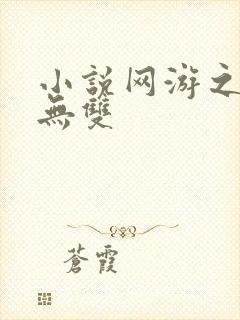 小説网游之
無雙
蒼霞